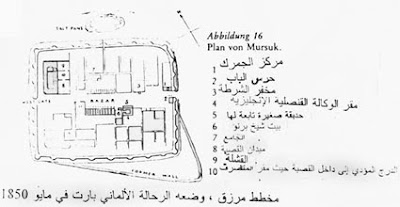 SALT PANS
Abbildung 16
Plan von Mursuk.
1 مركز الجمرك
2 حرس الباب
3 مخفر الشرطة
4 مقر الوكالة القنصلية الإنجليزية
5 حديقة صغيرة تابعة لها
6 بيت شيخ برنو
7 الجامع
8 ميدان القصبة
9 القشلة
10 الدرج المؤدي إلى داخل القصبة حيث مقر
GATE
BAZAAR
FORMER WALL
مخطط مرزق ، وضعه الرحالة الألماني بارت في مايو 1850